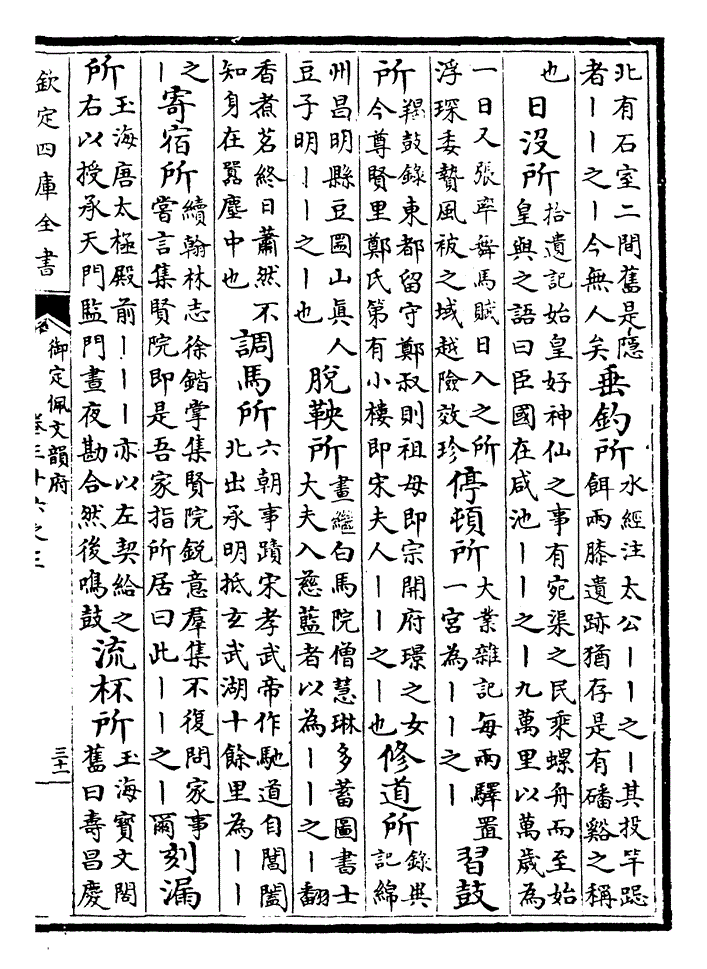 北有石室二間舊是隱者丨丨之丨今無人矣垂釣所水經注太公丨丨之丨其投竿跽餌兩膝遺跡猶存是有磻谿之稱
也日沒所拾遺記始皇好神仙之事有宛渠之民乘螺舟而至始皇與之語曰臣國在咸池丨丨之丨九萬里以萬歲為
一日又張率舞馬賦日入之所浮琛委贄風被之域越險效珍停頓所大業雜記每兩驛置一宮為丨丨之丨習鼓
所羯鼓錄東都留守鄭叔則祖母即宗開府璟之女今尊賢里鄭氏第有小樓即宋夫人丨丨之丨也修道所錄異記綿
州昌明縣豆圌山真人豆子明丨丨之丨也脫鞅所畫繼白馬院僧慧琳多蓄圖書士大夫入慈藍者以為丨丨之丨翻
香煮茗終日蕭然不知身在囂塵中也調馬所六朝事蹟宋孝武帝作馳道自閶闔北出承明抵玄武湖十餘里為丨丨
之丨寄宿所續翰林志徐鍇掌集賢院銳意羣集不復問家事嘗言集賢院即是吾家指所居曰此丨丨之丨爾刻漏
所玉海唐太極殿前丨丨丨亦以左契給之右以授承天門監門晝夜勘合然後鳴鼓流杯所玉海寶文閣舊曰壽昌慶
欽定四庫全書
御定佩文韻府
卷三十六之三
三十二